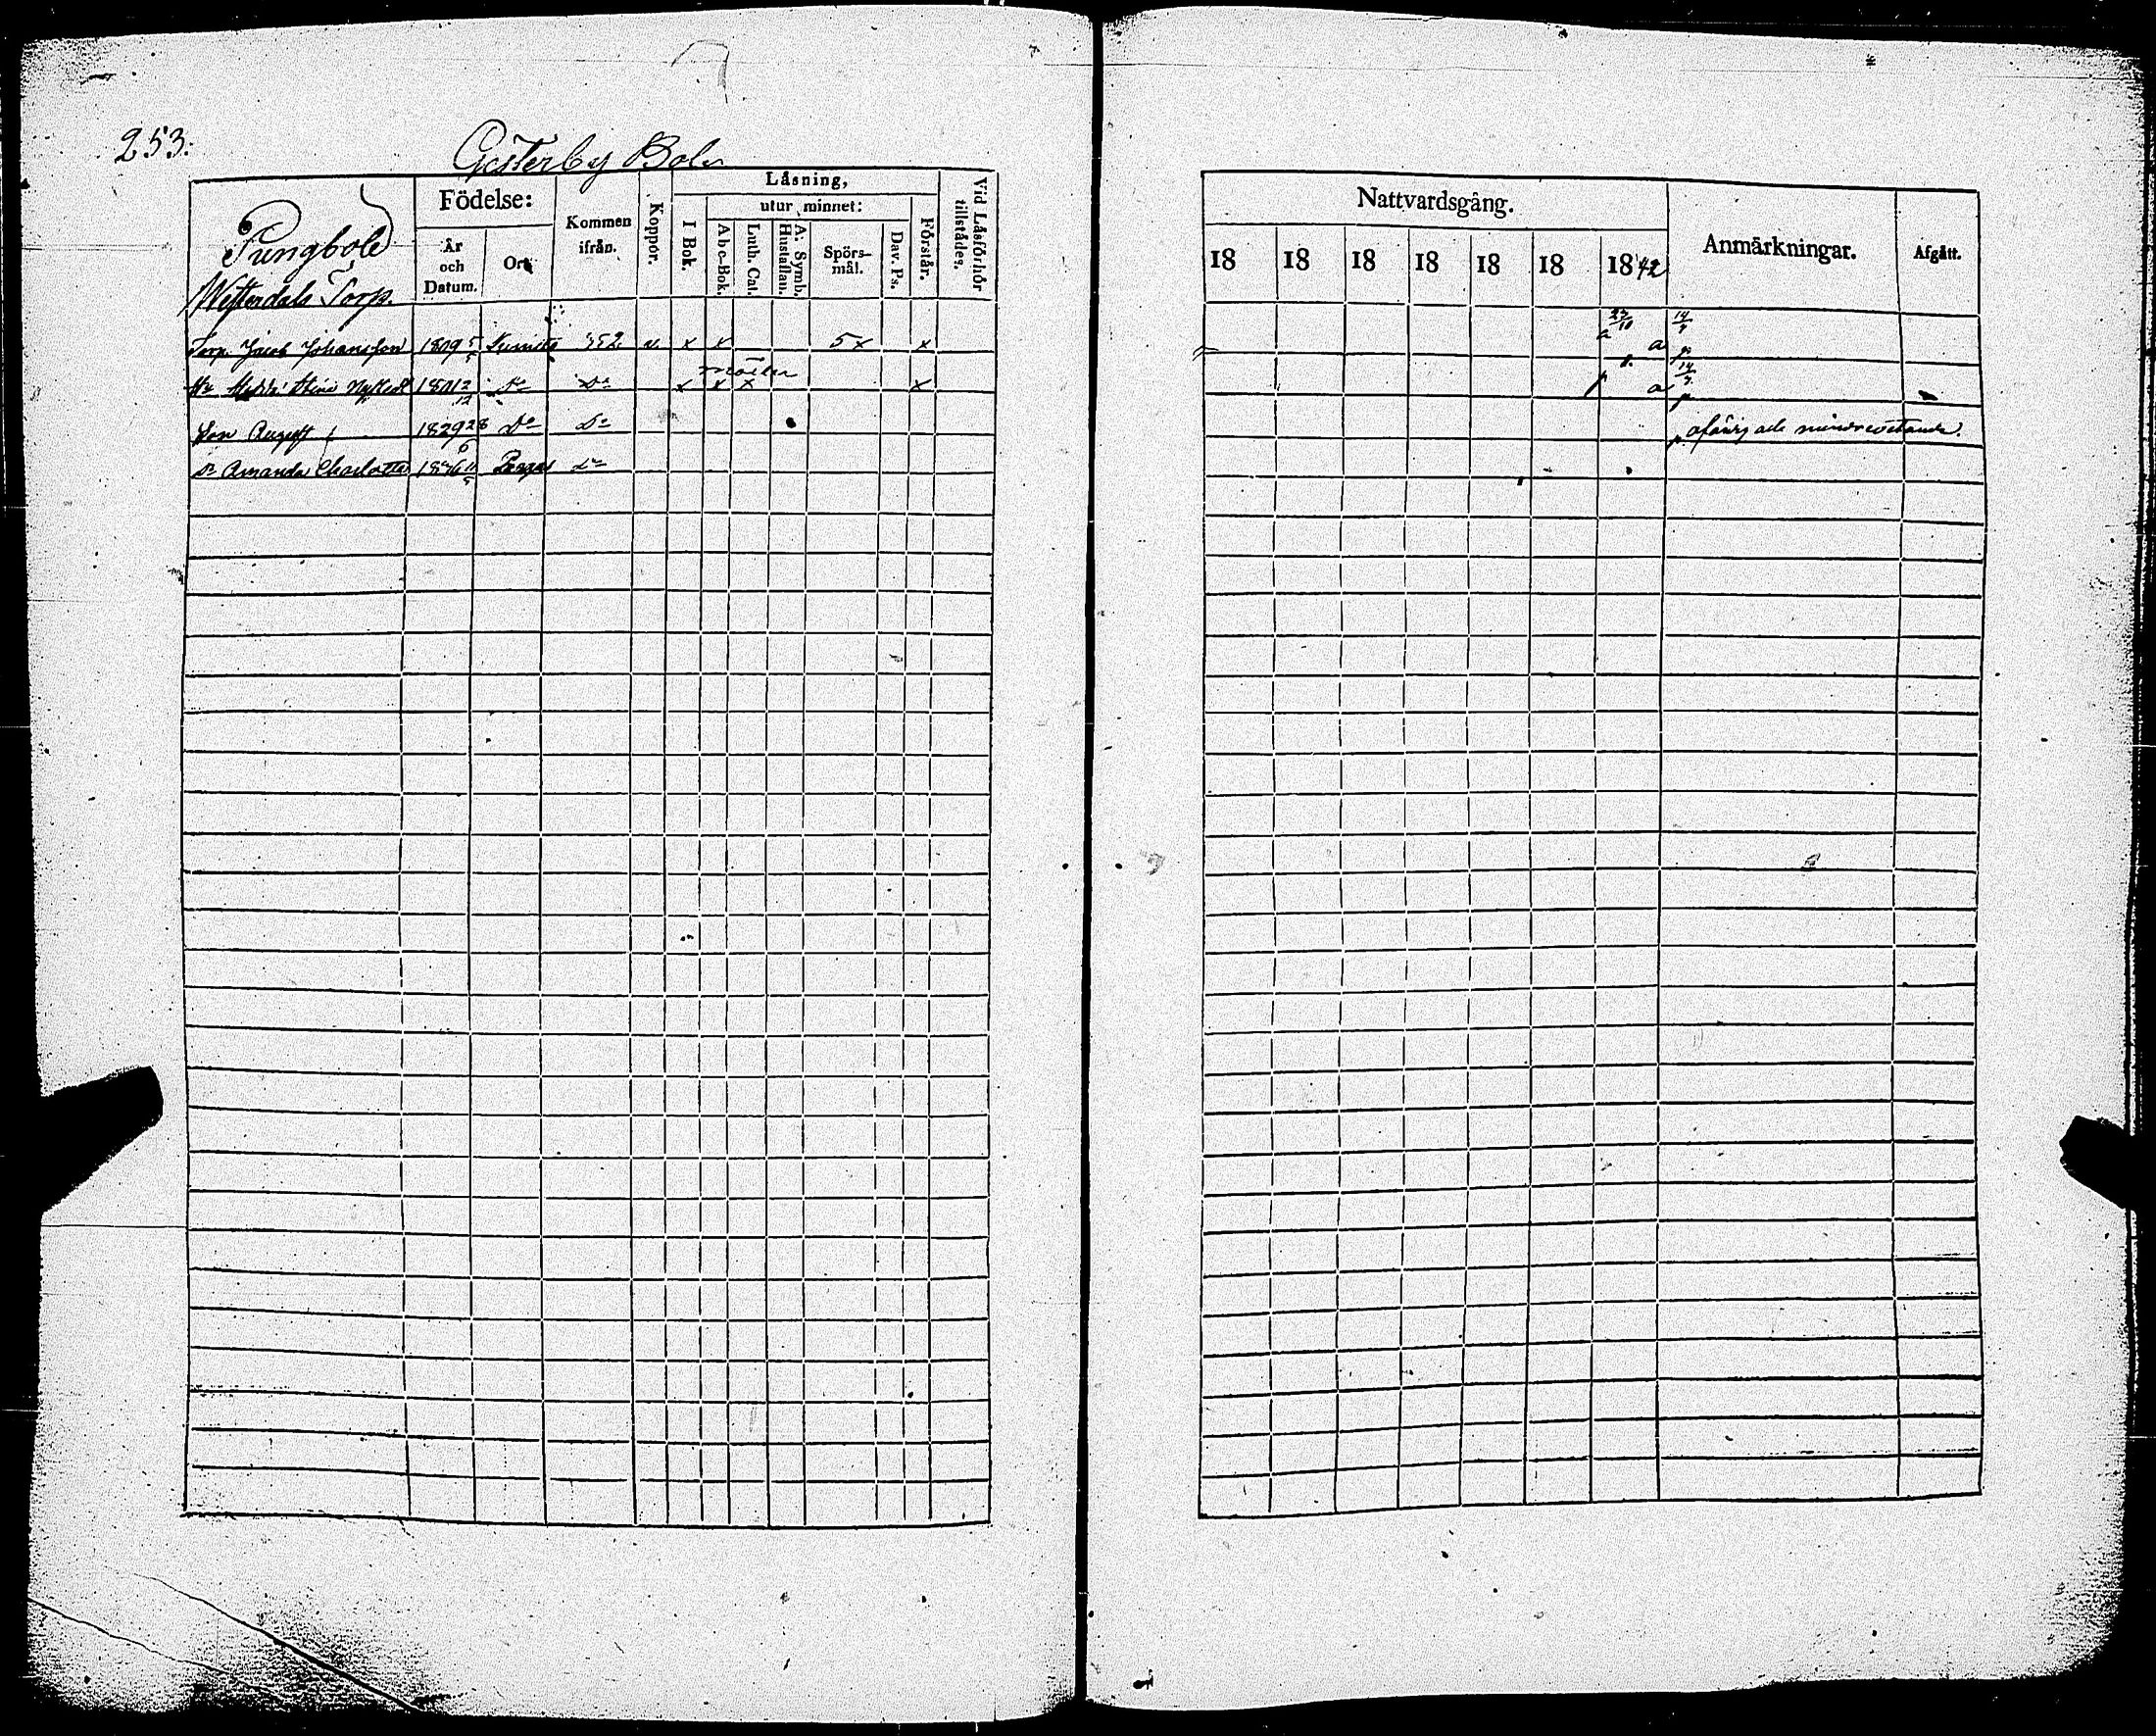 253.
Gesterby Bole
Pungbole
Westerdals Torp.
Födelse:
År och Datum.
Ort
Kommen ifrån.
Koppor.
Låsning,
utur minnet:
I Bok.
Abc-Bok.
Luth. Cat.
A. Symb. Hustaflan.
Spörs-mål.
Dav. Ps.
Förstår.
Vid Låsförhör tillstädes.
Torp. Jacob Johansson 1809 5/5 252 x x 5x x
1801 2/12 Do Do x x x x
Son August 1829 28/6 Do Do
Do Amanda Charlotta 1836 11/5 Pargas Do
Nattvardsgång.
18 18 18 18 18 18 1842
Anmärkningar.
Afgått.
23/10 14/7
a a
14/7
a